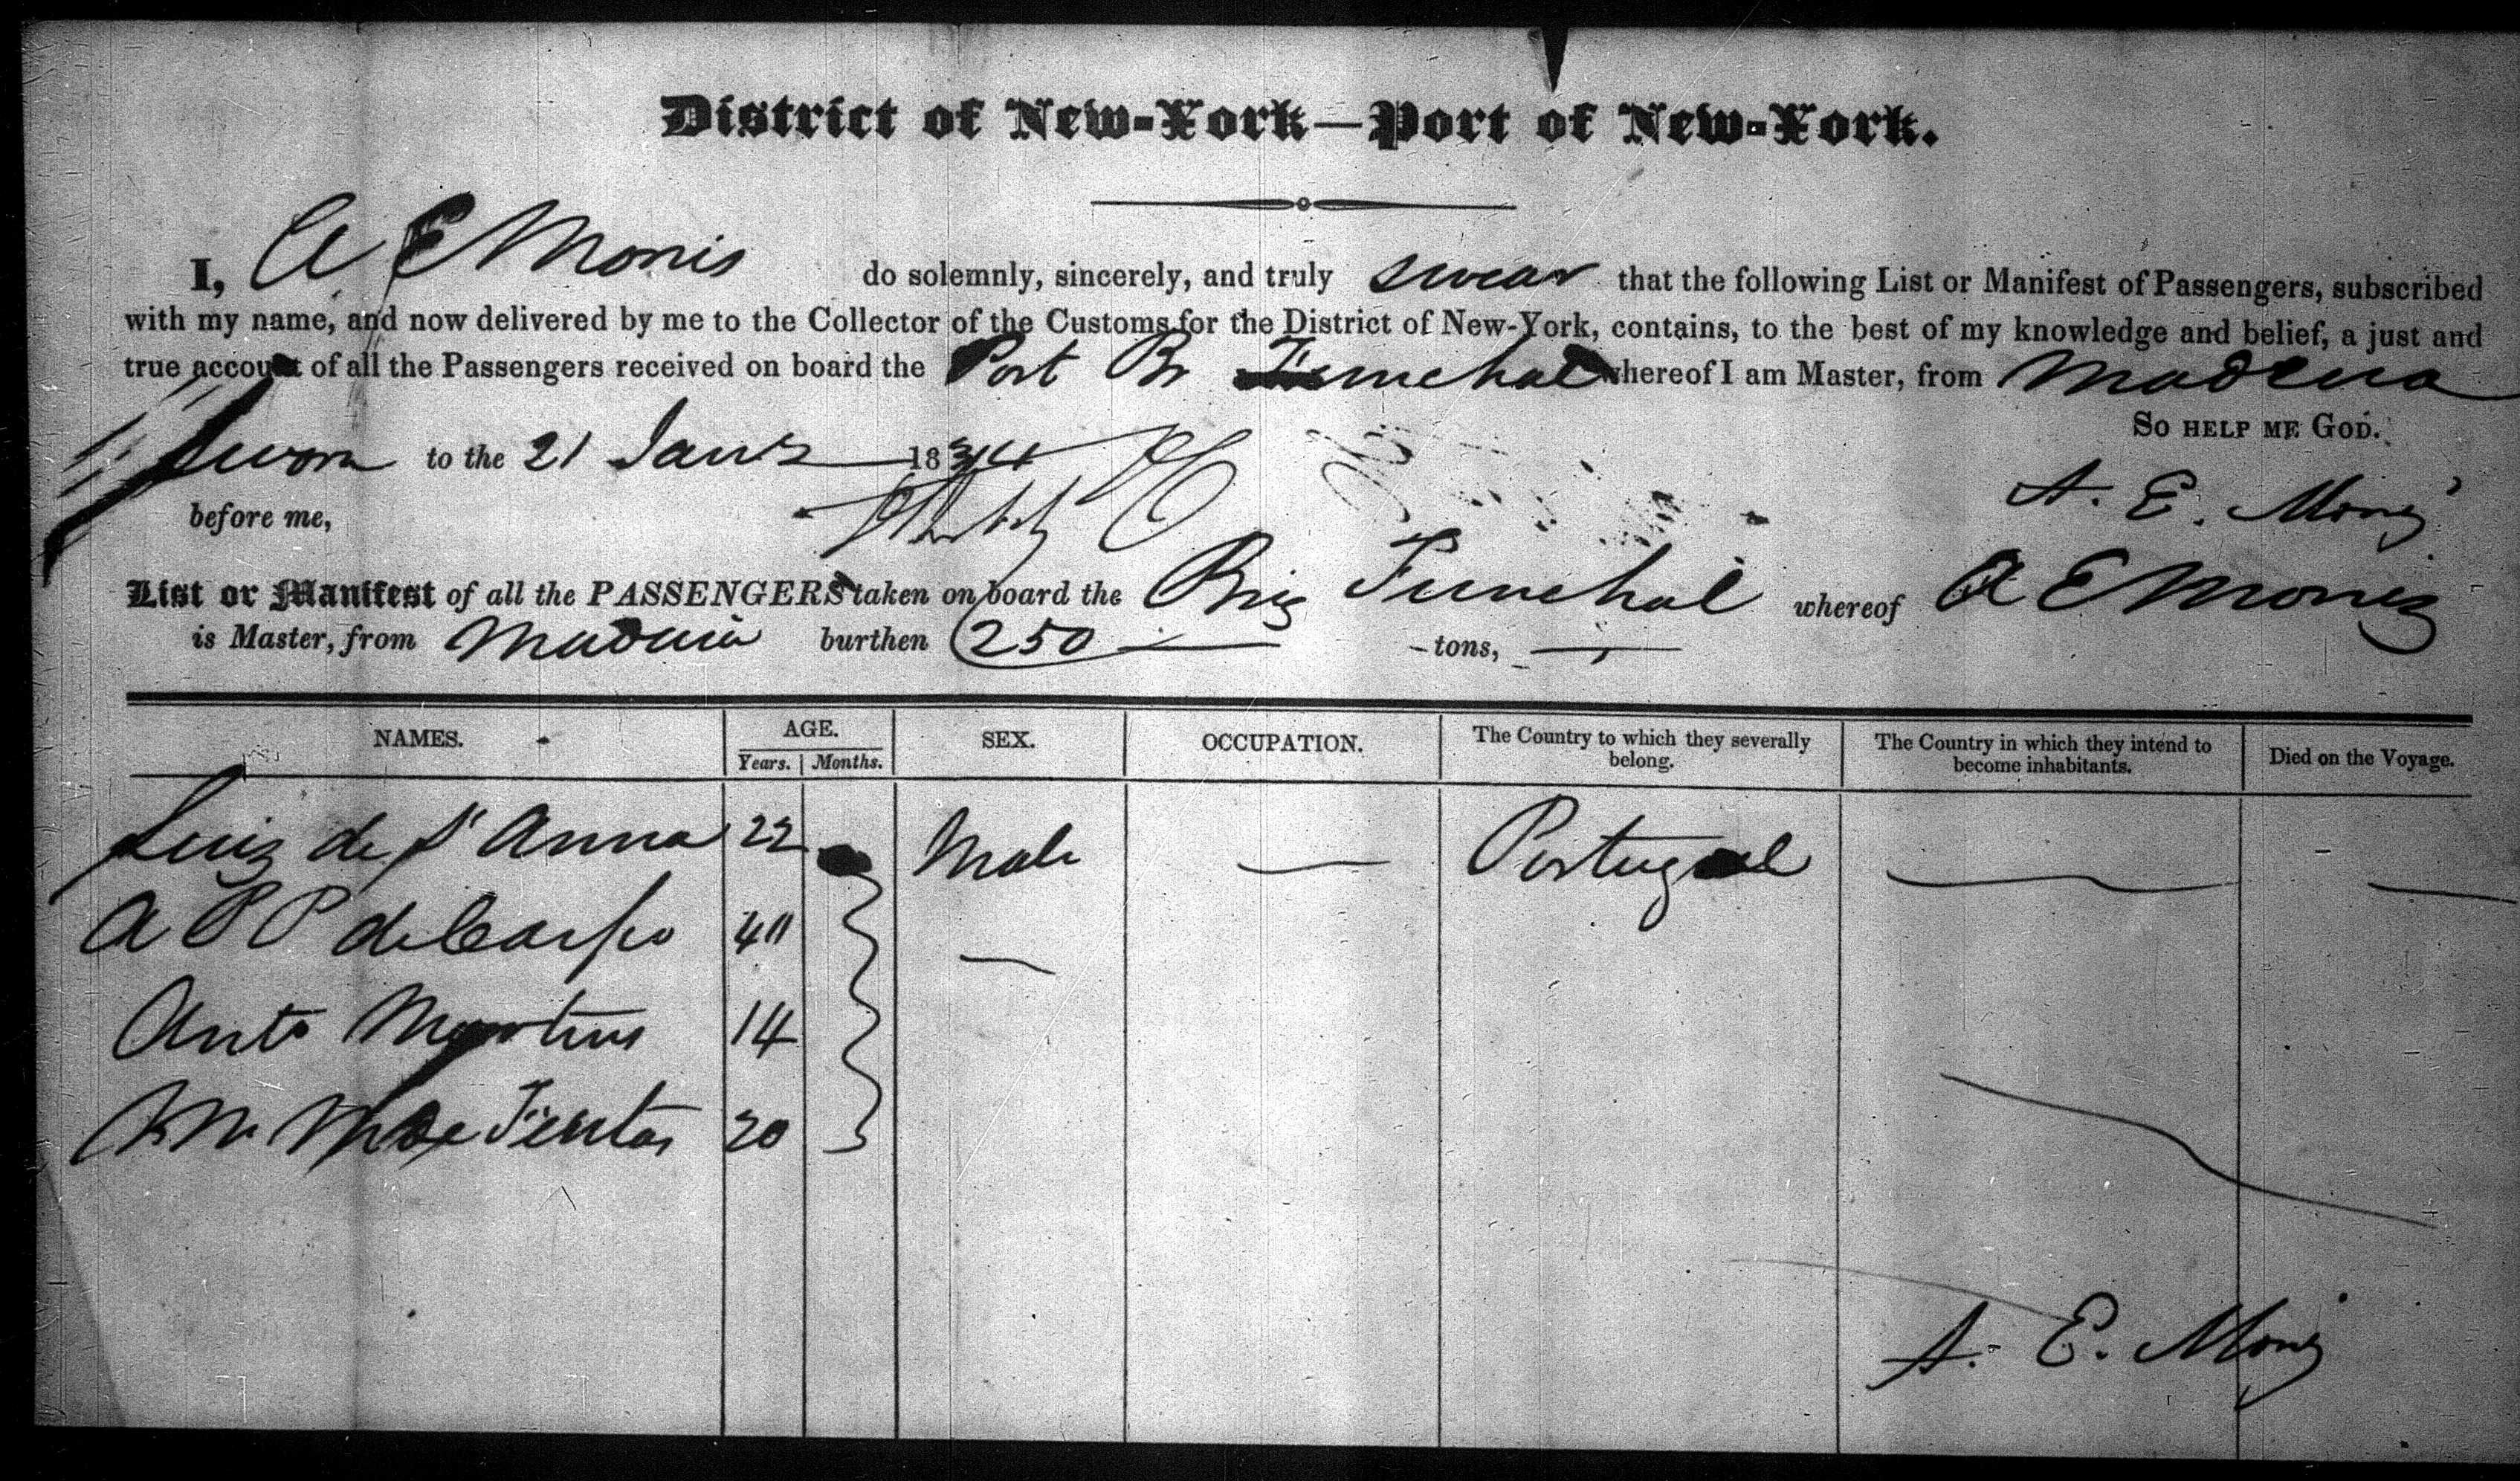 District of New-York—Port of New-York.
I, A E Monis do solemnly, sincerely, and truly swear that the following List or Manifest of Passengers, subscribed
with my name, and now delivered by me to the Collector of the Customs for the District of New-York, contains, to the best of my knowledge and belief, a just and
true account of all the Passengers received on board the Port Br Funchal whereof I am Master, from Madeira
So help me God.
Sworn to the 21 Jany 1834
A. E. Moniz
before me,
List or Manifest of all the PASSENGERS taken on board the Brig Funchal whereof A E Moniz
is Master, from Madeira burthen 250 tons,
NAMES. AGE. SEX. OCCUPATION. The Country to which they severally belong. The Country in which they intend to become inhabitants. Died on the Voyage.
Years. Months.
Luiz de St Anna 22 Male — Portugal —
A P P de Carpo 40 —
Anto Martins 14
de Freitas 20
A. E. Moniz